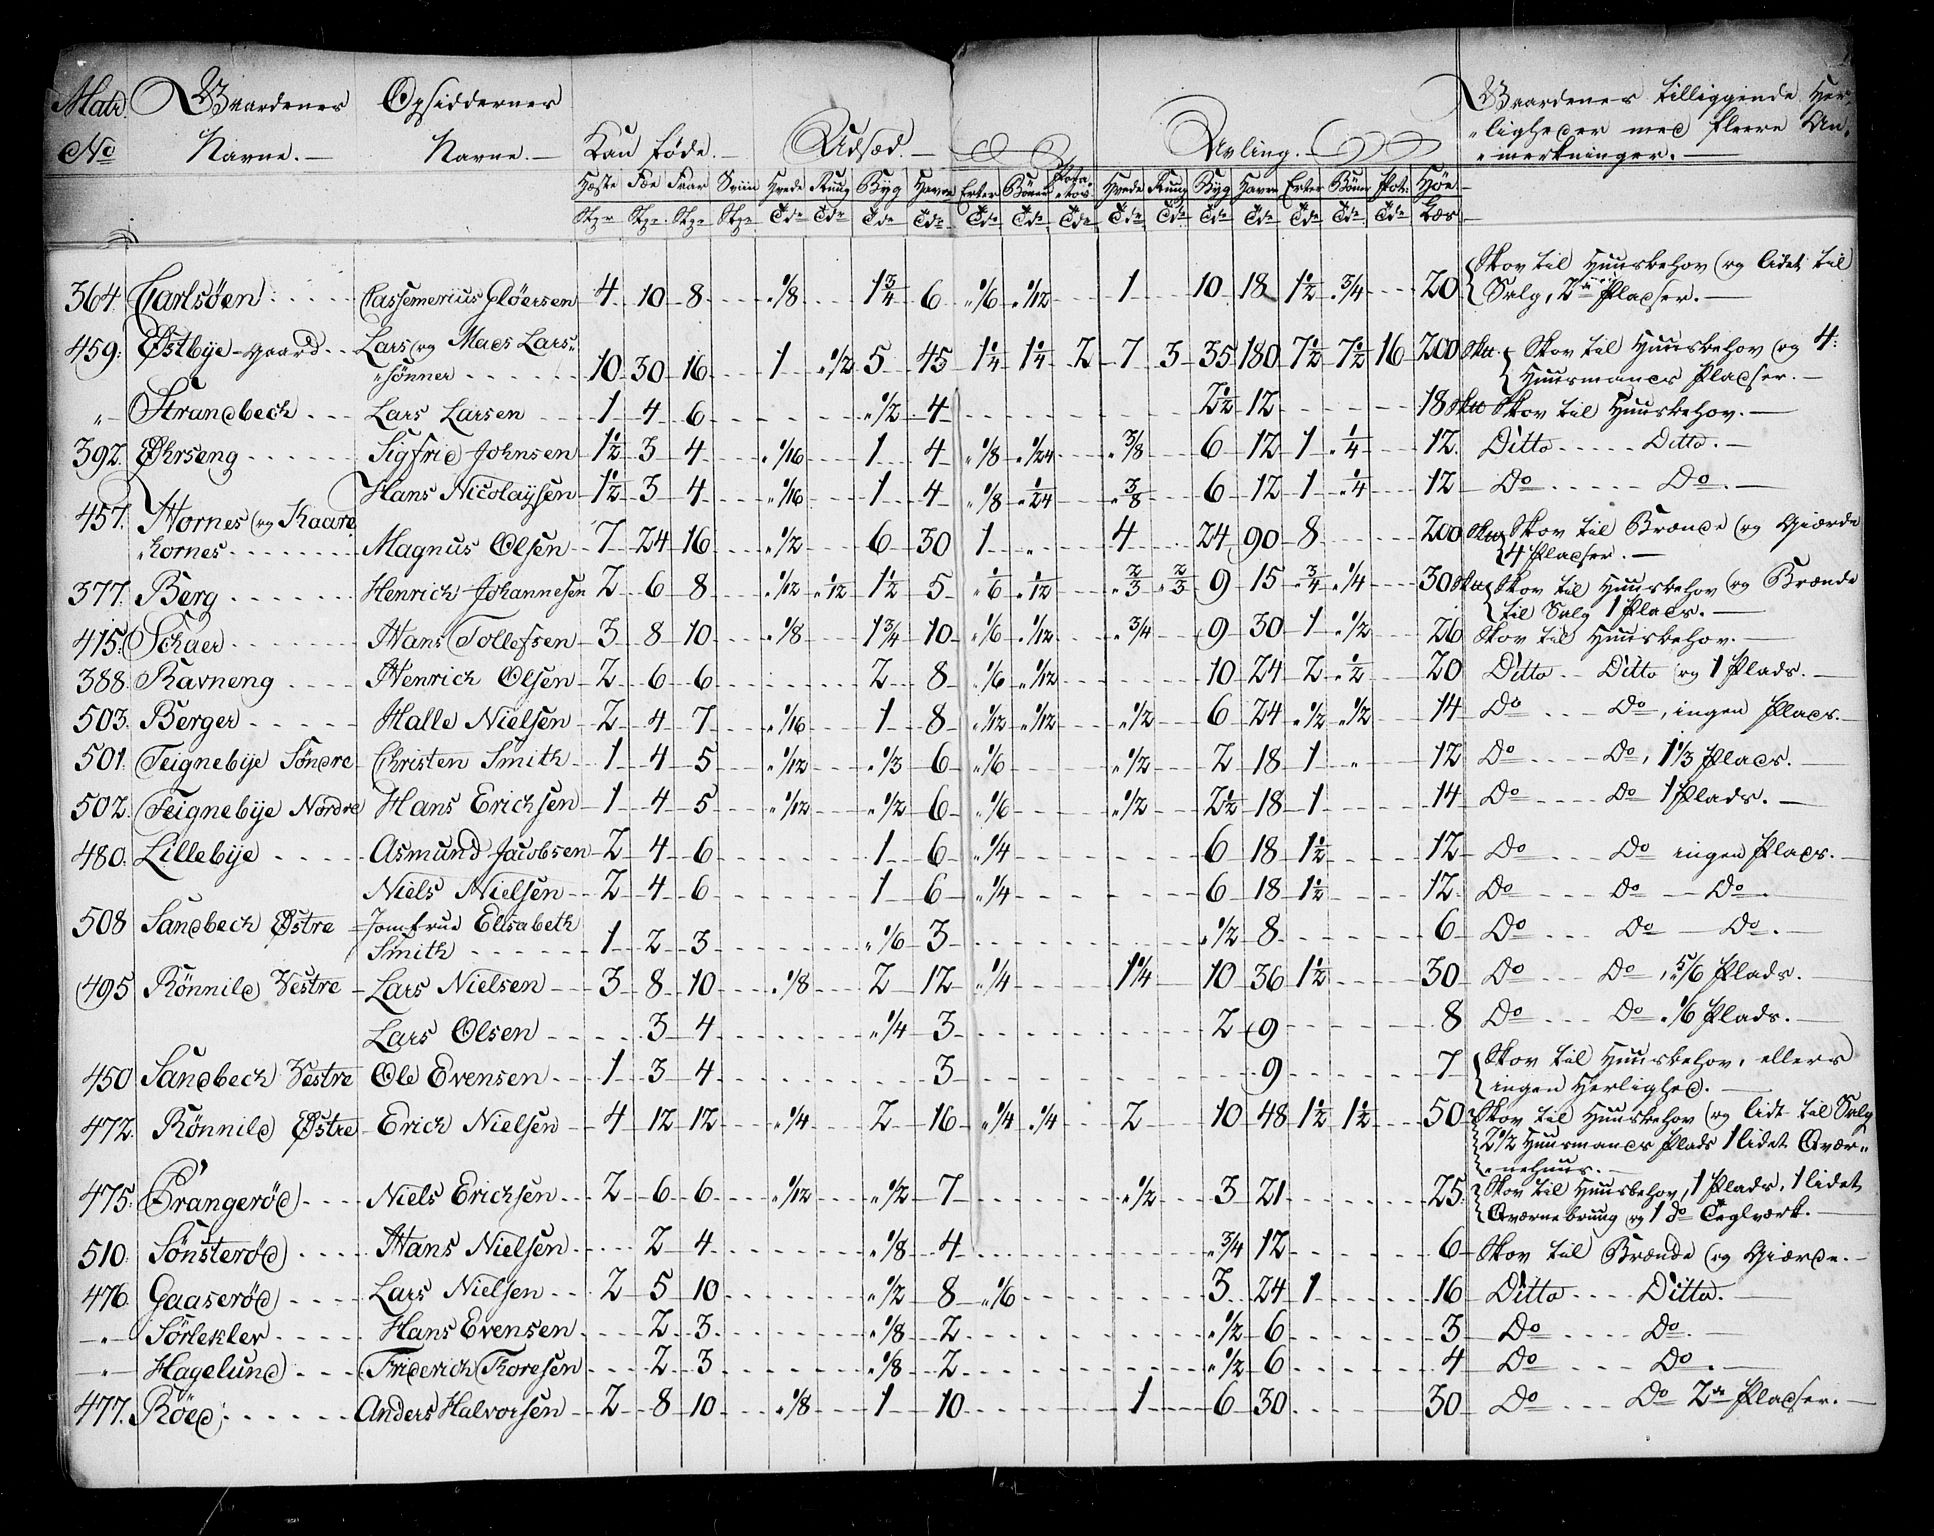 Matr. Gaardenes Opsiddernes Gaardenes tilliggende Her-
No Navne. Navne. Kan føde. Udsæd. Avling. ligheder med fleere An-
merkninger.
Hæste Fæe Faar Sviin Hvede Rung Byg Havre Erter Bönner Potatos Hvede Rung Byg Havre Erter Bönner Pot: Høe
Stkr Stkr Stkr Stkr Tdr Tdr Tdr Tdr Tdr Tdr Tdr Tdr Tdr Tdr Tdr Tdr Tdr Tdr Læs
364. Carlsöen Cassemerius Gløersen 4 10 8 " 1/8 1 3/4 6 " 1/6 " 1/12 1 10 18 1 1/2 " 3/4 20 Skov til Huusbehov og lidet til
Salg, 2de Pladser.
459. Østbye-Gaard Lars og Mads Lars-
sönner 10 30 16 1 " 1/2 5 45 1 1/4 1 1/4 2 7 3 35 180 7 1/2 7 1/2 16 200 Skov til Huusbehov og 4
Huusmands Pladser.
" Strandbech Lars Larsen 1 4 6 " 1/2 4 2 1/2 12 18 Skov til Huusbehov.
392. Øhrseng Sigfrid Johnsen 1 1/2 3 4 " 1/16 1 4 " 1/8 " 1/24 " 3/8 6 12 1 " 1/4 12 Ditto Ditto.
Hans Nicolaysen 1 1/2 3 4 " 1/16 1 4 " 1/8 " 1/24 " 3/8 6 12 1 " 1/4 12 Do Do.
457. Hornes og Kaare
Kornes Magnus Olsen 7 24 16 " 1/2 6 30 1 " 4 24 90 8 200 Skov til Brænde og Giærde
4 Pladser.
377. Berg Henrich Johannesen 2 6 8 " 1/12 " 1/12 1 1/2 5 " 1/6 " 1/12 " 2/3 " 2/3 9 15 " 3/4 " 1/4 30 Skov til Huusbehov og Brænde
til Salg 1 Plads.
415. Schaer Hans Tollefsen 3 8 10 " 1/8 1 3/4 10 " 1/6 " 1/12 " 3/4 9 30 1 " 1/2 26 Skov til Huusbehov.
388. Ravneng Henrich Olsen 2 6 6 2 8 " 1/6 " 1/12 10 24 2 " 1/2 20 Ditto Ditto og 1 Plads.
503. Berger Halle Nielsen 2 4 7 " 1/16 1 8 " 1/12 " 1/12 " 1/2 6 24 " 1/2 " 1/2 14 Do Do, ingen Plads.
501. Teignebye Söndre Christen Smith 1 4 5 " 1/12 " 1/3 6 " 1/6 " 1/2 2 18 1 " 12 Do Do, 1 1/3 Plads.
502. Teignebye Nordre Hans Erichsen 1 4 5 " 1/12 " 1/2 6 " 1/6 " 1/2 2 1/2 18 1 14 Do Do 1 Plads.
480. Lillebye Asmund Jacobsen 2 4 6 1 6 " 1/4 6 18 1 1/2 12 Do Do ingen Plads.
Niels Nielsen 2 4 6 1 6 " 1/4 6 18 1 1/2 12 Do Do Do.
508 Sandbech Østre Jomfrue Elisabeth
Smith 1 2 3 " 1/6 3 " 1/2 8 6 Do Do Do.
495 Rönnild Vestre Lars Nielsen 3 8 10 " 1/8 2 12 " 1/4 1 1/4 10 36 1 1/2 30 Do Do, " 5/6 Plads.
Lars Olsen 3 4 " 1/4 3 2 9 8 Do Do " 1/6 Plads.
450 Sandbech Vestre Ole Evensen 1 3 4 3 9 7 Skov til Huusbehov, ellers
ingen Herlighed.
472. Rönnild Østre Erich Nielsen 4 12 12 " 1/4 2 16 " 1/4 " 1/4 2 10 48 1 1/2 1 1/2 50 Skov til Huusbehov og lidt til Salg
2 1/2 Huusmands Plads 1 lidet Qvær-
nehuus.
475. Prangeröd Niels Erichsen 2 6 6 " 1/12 " 1/2 7 " 1/2 3 21 25 Skov til Huusbehov, 1 Plads, 1 lidet
Qværnebruug og 1 do Teglværk.
510. Sönsteröd Hans Nielsen 2 4 " 1/8 4 " 3/4 12 6 Skov til Brænde og Giærde.
476. Gaaseröd Lars Nielsen 2 5 10 " 1/2 8 " 1/6 3 24 1 16 Ditto Ditto.
" Sörlekler Hans Evensen 2 3 " 1/8 2 " 1/2 6 3 Do Do.
" Hagelund Friderich Thoresen 2 3 " 1/8 2 " 1/2 6 4 Do Do.
477. Röed Anders Halvorsen 2 8 10 " 1/8 1 10 1 6 30 30 Do Do 2de Pladser.